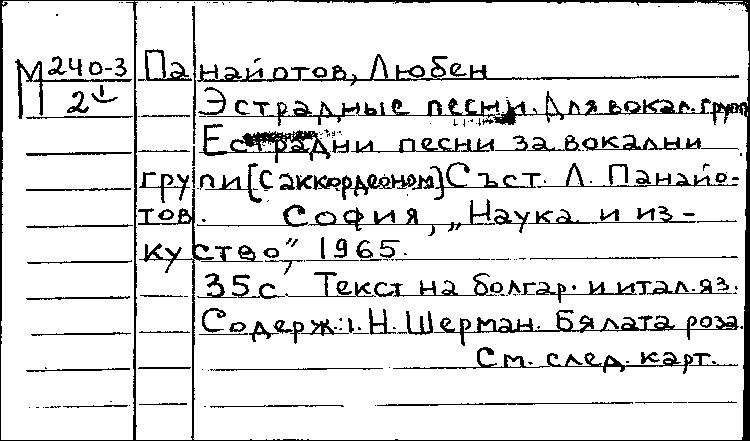 М 240-3 Панайотов, Любен
2
Эстрадные песни. Для вокал. групп
Естрадни песни за вокални
групи [с аккордеоном] Съст. Л. Панайо-
тов. София, „Наука и из-
куство“, 1965.
35 с. Текст на болгар. и итал. яз.
Содерж.: 1. Н. Шерман. Бялата роза.
См. след. карт.